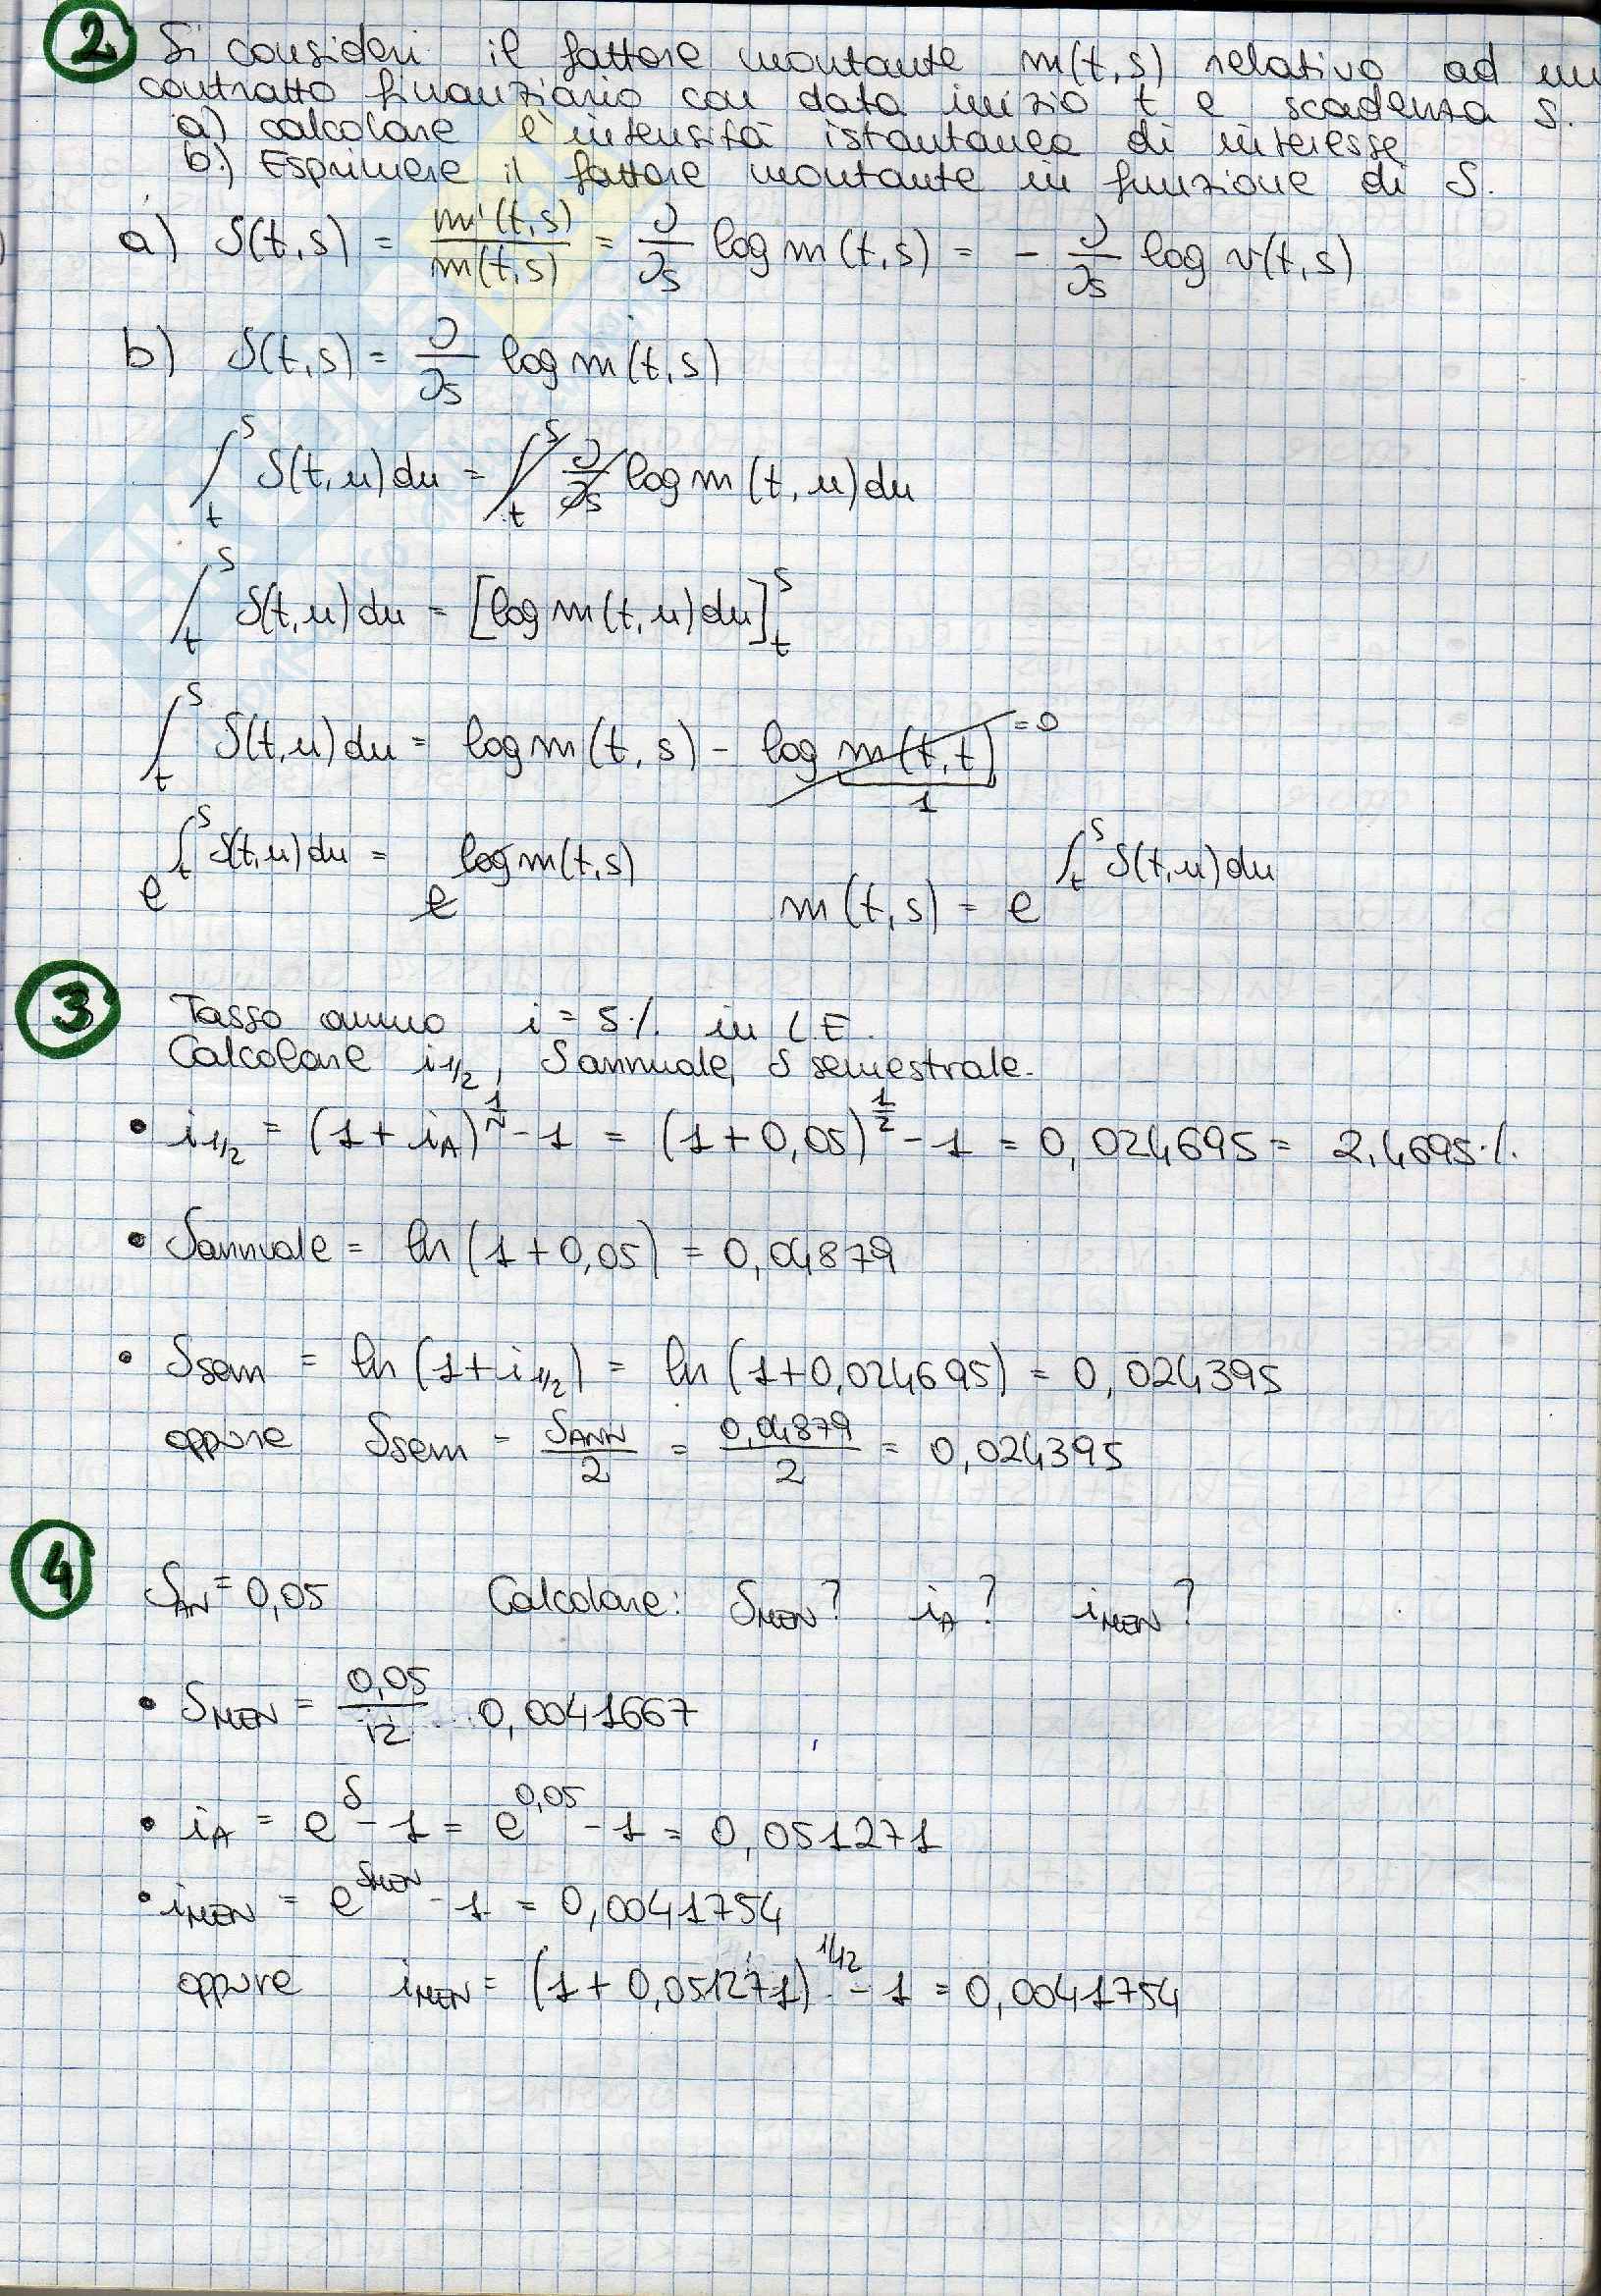 2 Si consideri il fattore montante m(t,s) relativo ad un
contratto finanziario con data inizio t e scadenza s.
a) calcolare l'intensità istantanea di interesse
b) Esprimere il fattore montante in funzione di δ.
a) δ(t,s) = m'(t,s)/m(t,s) = ∂/∂s log m(t,s) = - ∂/∂s log v(t,s)
b) δ(t,s) = ∂/∂s log m(t,s)
∫_t^s δ(t,u)du = ∫_t^s ∂/∂s log m(t,u)du
∫_t^s δ(t,u)du = [log m(t,u)du]_t^s
∫_t^s δ(t,u)du = log m(t,s) - log m(t,t) =0
1
e^{∫_t^s δ(t,u)du} = e^{log m(t,s)} m(t,s) = e^{∫_t^s δ(t,u)du}
3 Tasso annuo i = 5% in L.E.
Calcolare i_{1/2}, δ annuale, δ semestrale.
• i_{1/2} = (1+i_A)^{1/N} - 1 = (1+0,05)^{1/2} - 1 = 0,024695 = 2,4695%
• δannuale = ln(1+0,05) = 0,04879
• δsem = ln(1+i_{1/2}) = ln(1+0,024695) = 0,024395
oppure δsem = δ_ANN/2 = 0,04879/2 = 0,024395
4 δ_AN = 0,05 Calcolare: δ_MEN? i_A? i_MEN?
• δ_MEN = 0,05/12 ... 0,0041667
• i_A = e^δ - 1 = e^{0,05} - 1 = 0,051271
• i_MEN = e^{δ_MEN} - 1 = 0,0041754
oppure i_MEN = (1+0,051271)^{1/12} - 1 = 0,0041754